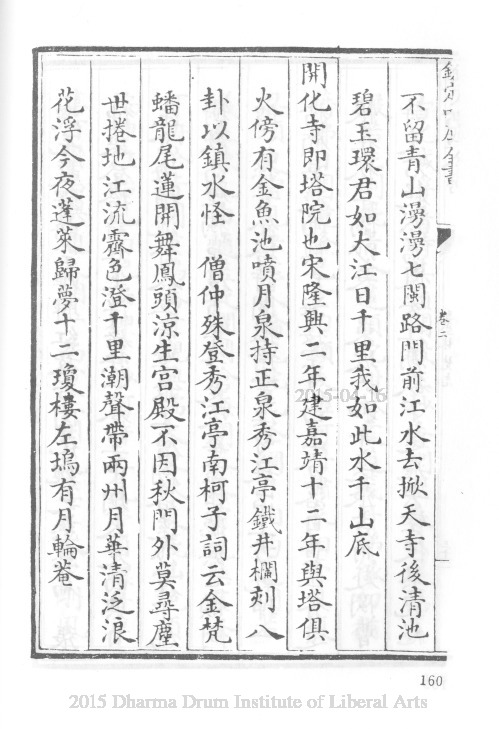 欽定四庫全書
卷二
不留青山漫漫七閩路門前江水去掀天寺後清池
碧玉環君如大江日千里我如此水千山底
開化寺即塔院也宋隆興二年建嘉靖十二年與塔俱
火傍有金魚池噴月泉持正泉秀江亭鐵井欄刻八
卦以鎮水怪 僧仲殊登秀江亭南柯子詞云金梵
蟠龍尾蓮開舞鳳頭涼生宫殿不因秋門外莫尋塵
世捲地江流霽色澄千里潮聲帶兩州月華清泛浪
花浮今夜蓬萊歸夢十二瓊樓左塢有月輪菴
2015-04-16
160
2015 Dharma Drum Institute of Liberal Arts